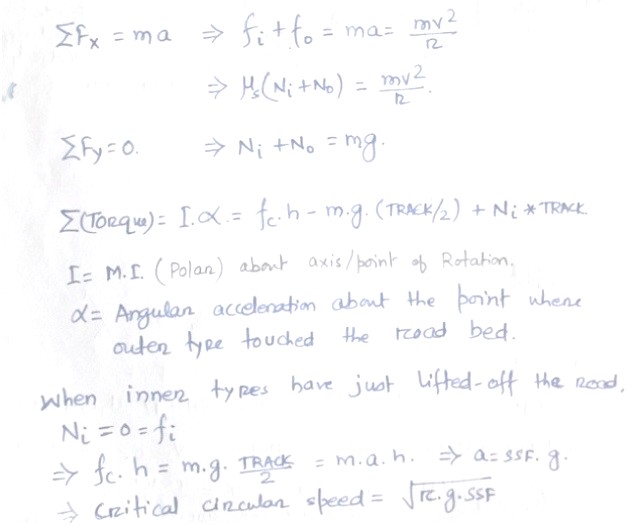 ΣFx = ma ⇒ fi + fo = ma = mv²/r
⇒ μs(Ni + No) = mv²/r.
ΣFy = 0. ⇒ Ni + No = mg.
Σ(Torque) = I.α. = fc.h - m.g. (TRACK/2) + Ni * TRACK
I = M.I. (Polar) about axis/point of Rotation.
α = Angular acceleration about the point where
outer tyre touched the road bed.
When inner tyres have just lifted-off the road,
Ni = 0 = fi
⇒ fc. h = m.g. TRACK/2 = m.a.h. ⇒ a = SSF. g.
⇒ Critical circular speed = √r.g.SSF